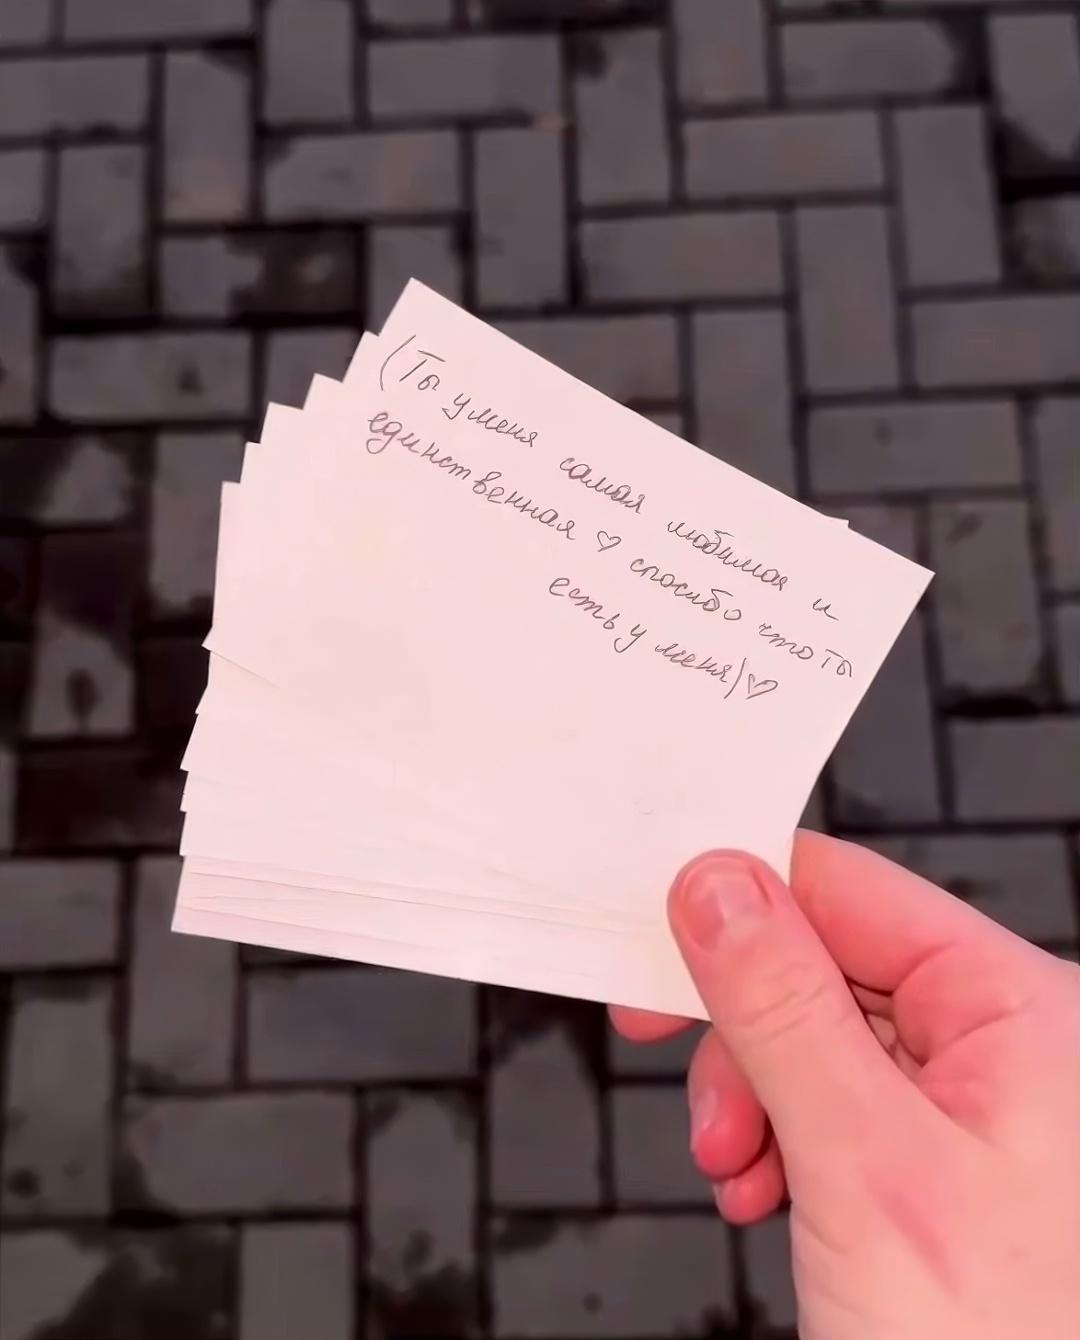 (Ты у меня самая любимая и
единственная ♡ спосибо что ты
есть у меня)♡